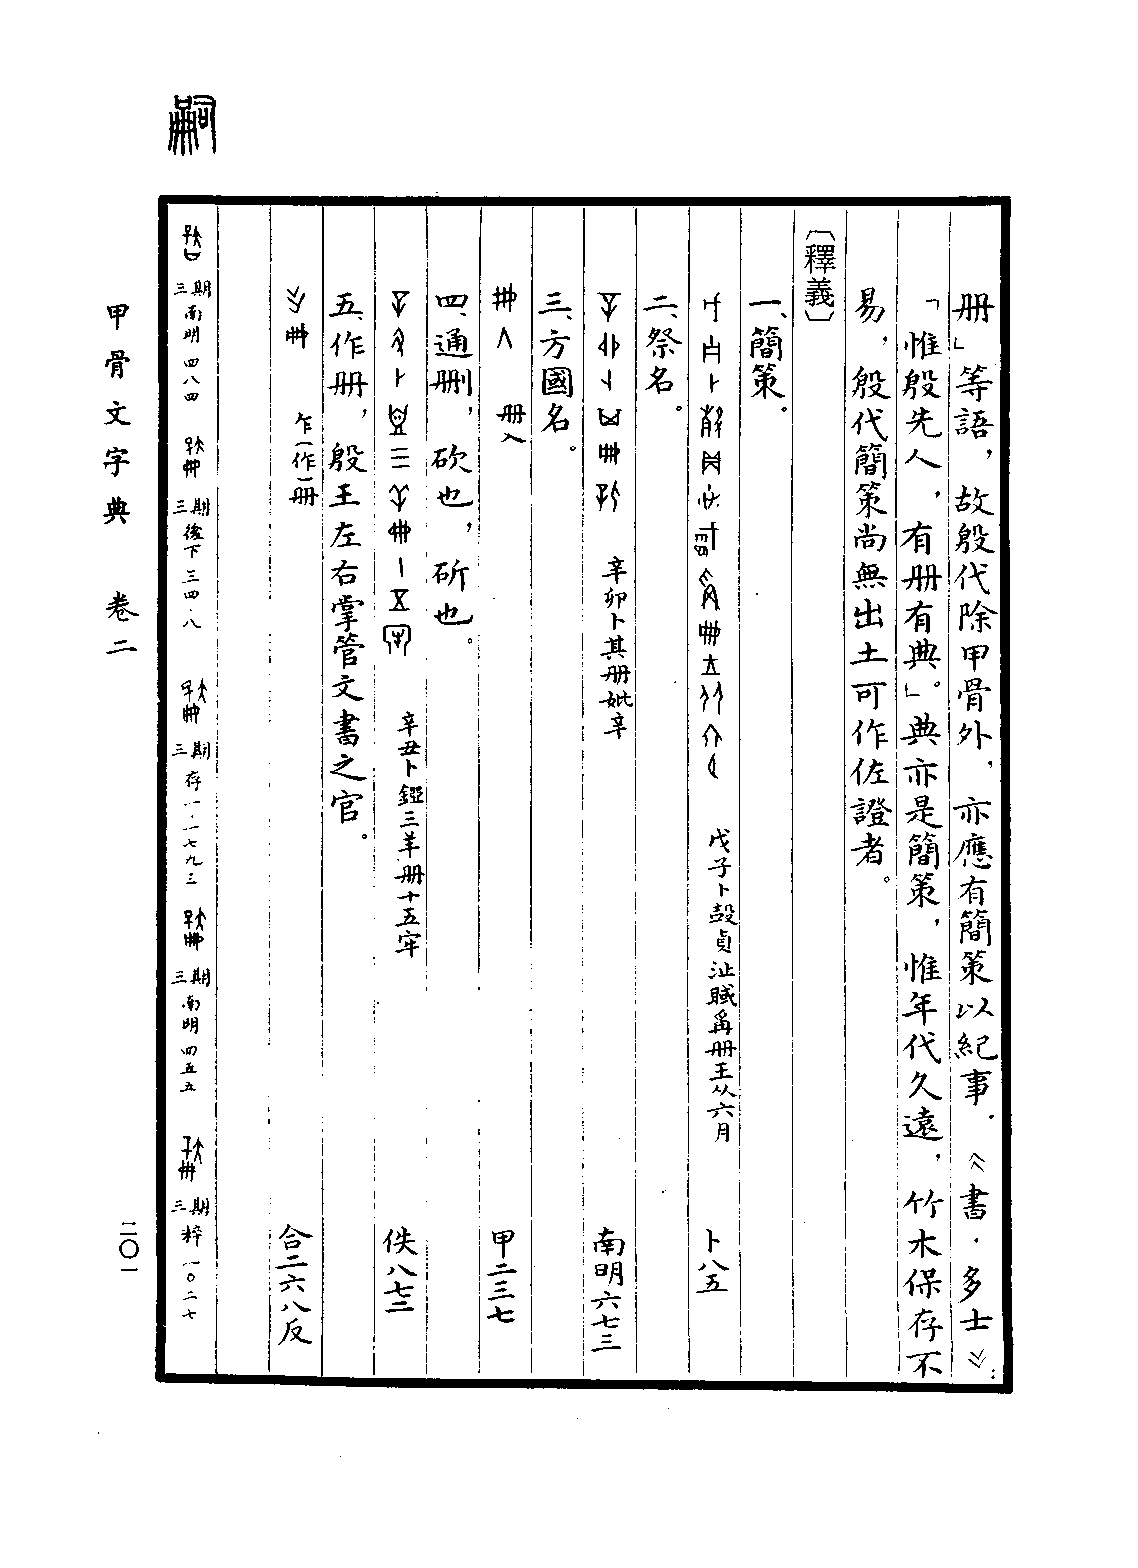 册」等語，故殷代除甲骨外，亦應有簡策以紀事．《書．多士》：
「惟殷先人，有册有典」。典亦是簡策，惟年代久遠，竹木保存不
易，殷代簡策尚無出土可作佐證者。
〔釋義〕
一、簡策。
戊子卜㱿貞沚䤥爯册王从六月 卜八五
二、祭名。
辛卯卜其册妣辛 南明六七三
三、方國名。
册入 甲二三七
四、通删，砍也，斫也。
辛丑卜三羊册十五牢 佚八七二
五、作册，殷王左右掌管文書之官。
乍（作）册 合二六八反
三期南明四八四
三期後下三四．八
三期存一．一七九三
三期南明四五五
三期粹一〇二七
嗣
甲骨文字典 卷二
二〇一